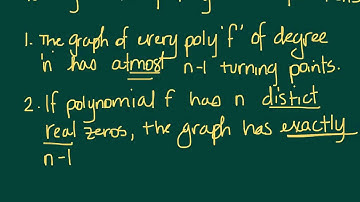 1. The graph of every poly 'f' of degree
'n' has atmost n-1 turning points.
2. If polynomial f has n distict
real zeros, the graph has exactly
n-1